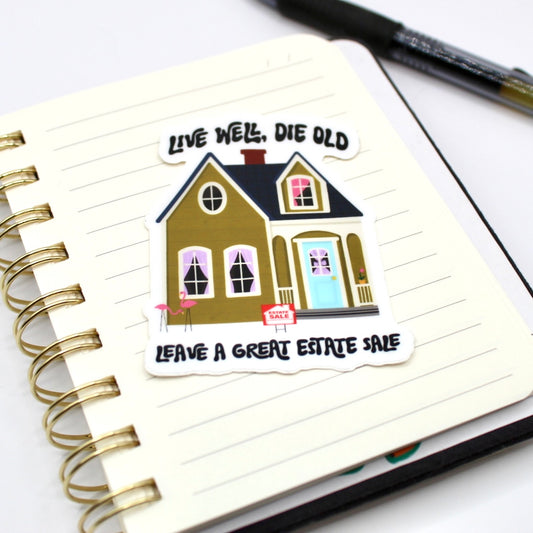 LIVE WELL, DIE OLD
ESTATE
SALE
LEAVE A GREAT ESTATE SALE